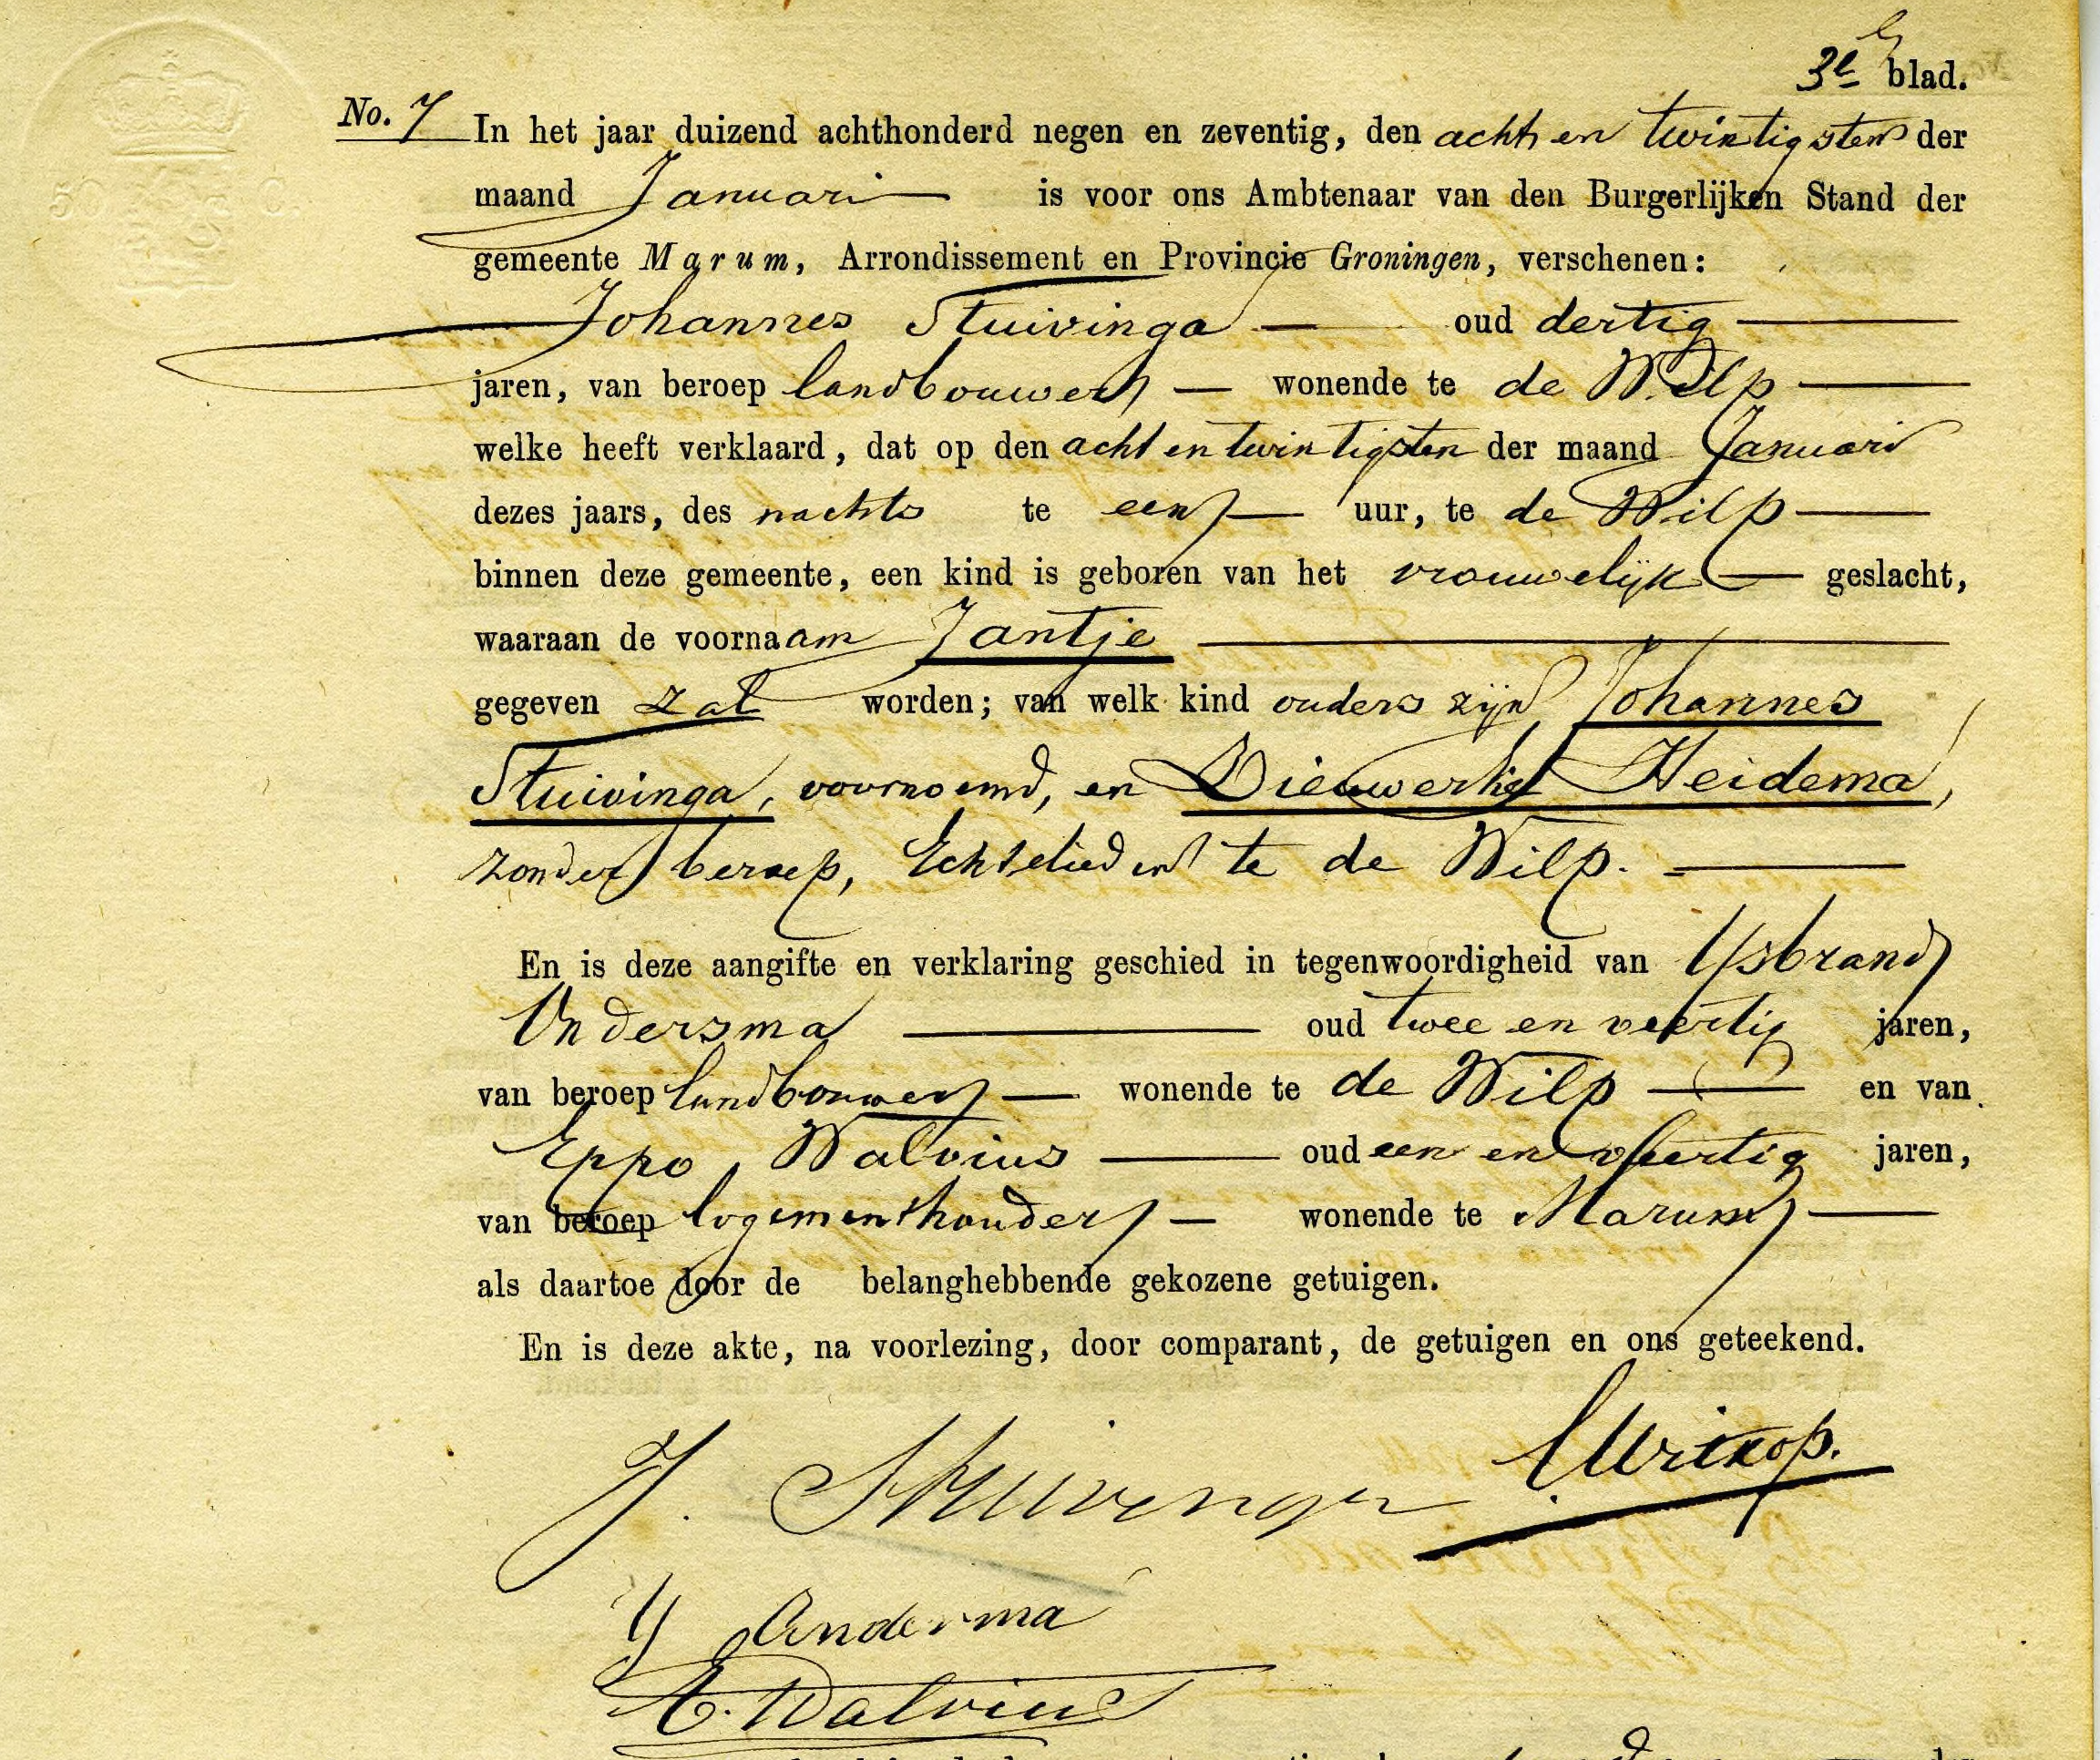 3e blad.
No. 7 In het jaar duizend achthonderd negen en zeventig, den acht en twintigsten der
maand Januari is voor ons Ambtenaar van den Burgerlijken Stand der
gemeente Marum, Arrondissement en Provincie Groningen, verschenen:
Johannes Stuivinga oud dertig
jaren, van beroep landbouwer wonende te de Wilp
welke heeft verklaard, dat op den acht en twintigsten der maand Januari
dezes jaars, des nachts te een uur, te de Wilp
binnen deze gemeente, een kind is geboren van het vrouwelijk geslacht,
waaraan de voornaam Jantje
gegeven zal worden; van welk kind ouders zijn Johannes
Stuivinga, voornoemd, en Dieuwerke Heidema,
zonder beroep, Echtelieden te de Wilp.
En is deze aangifte en verklaring geschied in tegenwoordigheid van IJsbrand
oud twee en veertig jaren,
van beroep landbouwer wonende te de Wilp en van
Eppo Walvius oud een en veertig jaren,
van beroep logementhouder wonende te Marum
als daartoe door de belanghebbende gekozene getuigen.
En is deze akte, na voorlezing, door comparant, de getuigen en ons geteekend.
J. Stuivenga
IJ Anderma
E. Walvius
50 C.